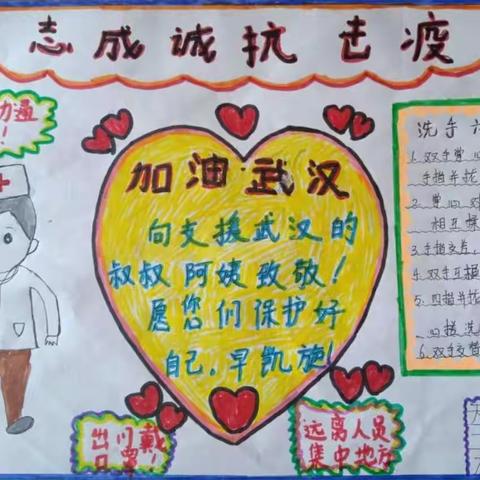 志成诚抗击疫
力逼
!
加油武汉
向支援武汉的
叔叔阿姨致敬!
愿您们保护好
自己,早凯旋!
洗手
1.双手掌心
手指并拢
2.掌心对
相互揉
3.手指交差,
4.双手互握
5.四指并拢
6.双手交替
出门戴
口罩!
远离人员
集中地方